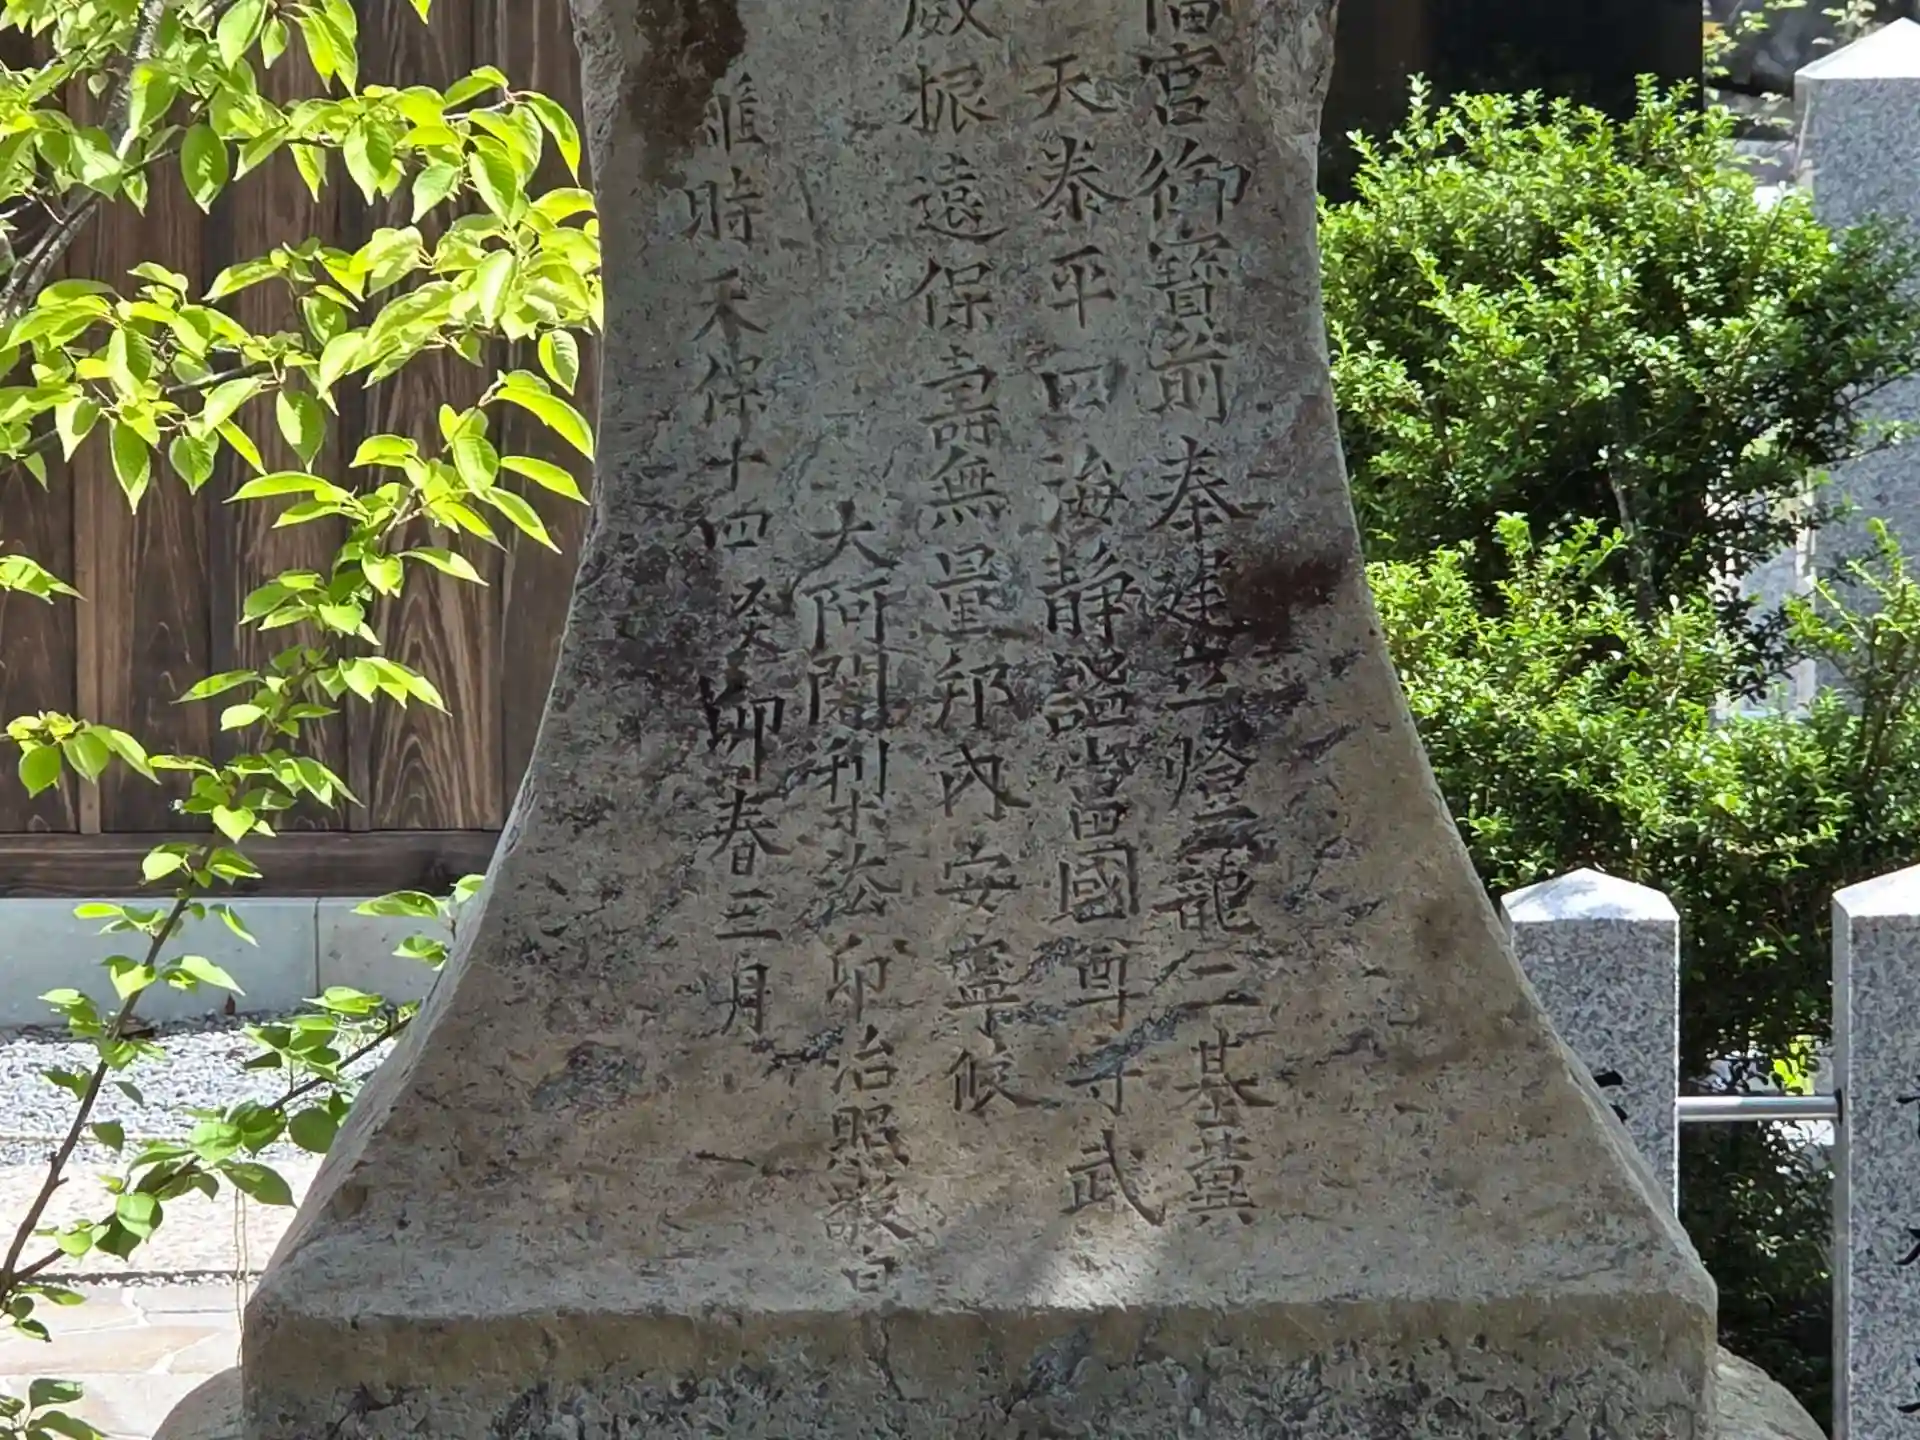 宮御寳前奉建立燈籠二基冀
天泰平四海静謐當國尊守武
威振遠保壽無量邦内安寧候
大阿闍梨法印治照敬白
維時天保十四癸卯春三月